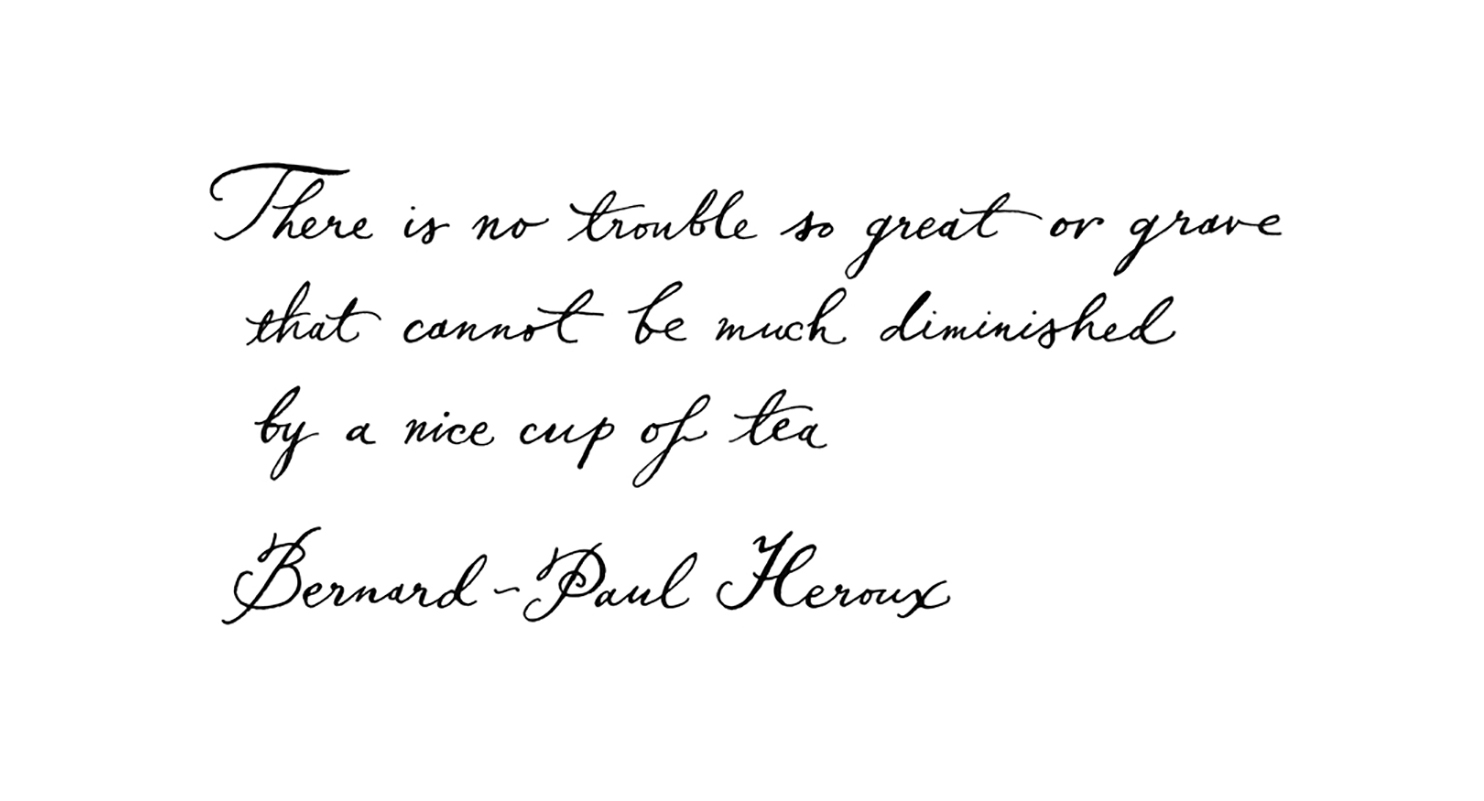 There is no trouble so great or grave
that cannot be much diminished
by a nice cup of tea
Bernard-Paul Heroux